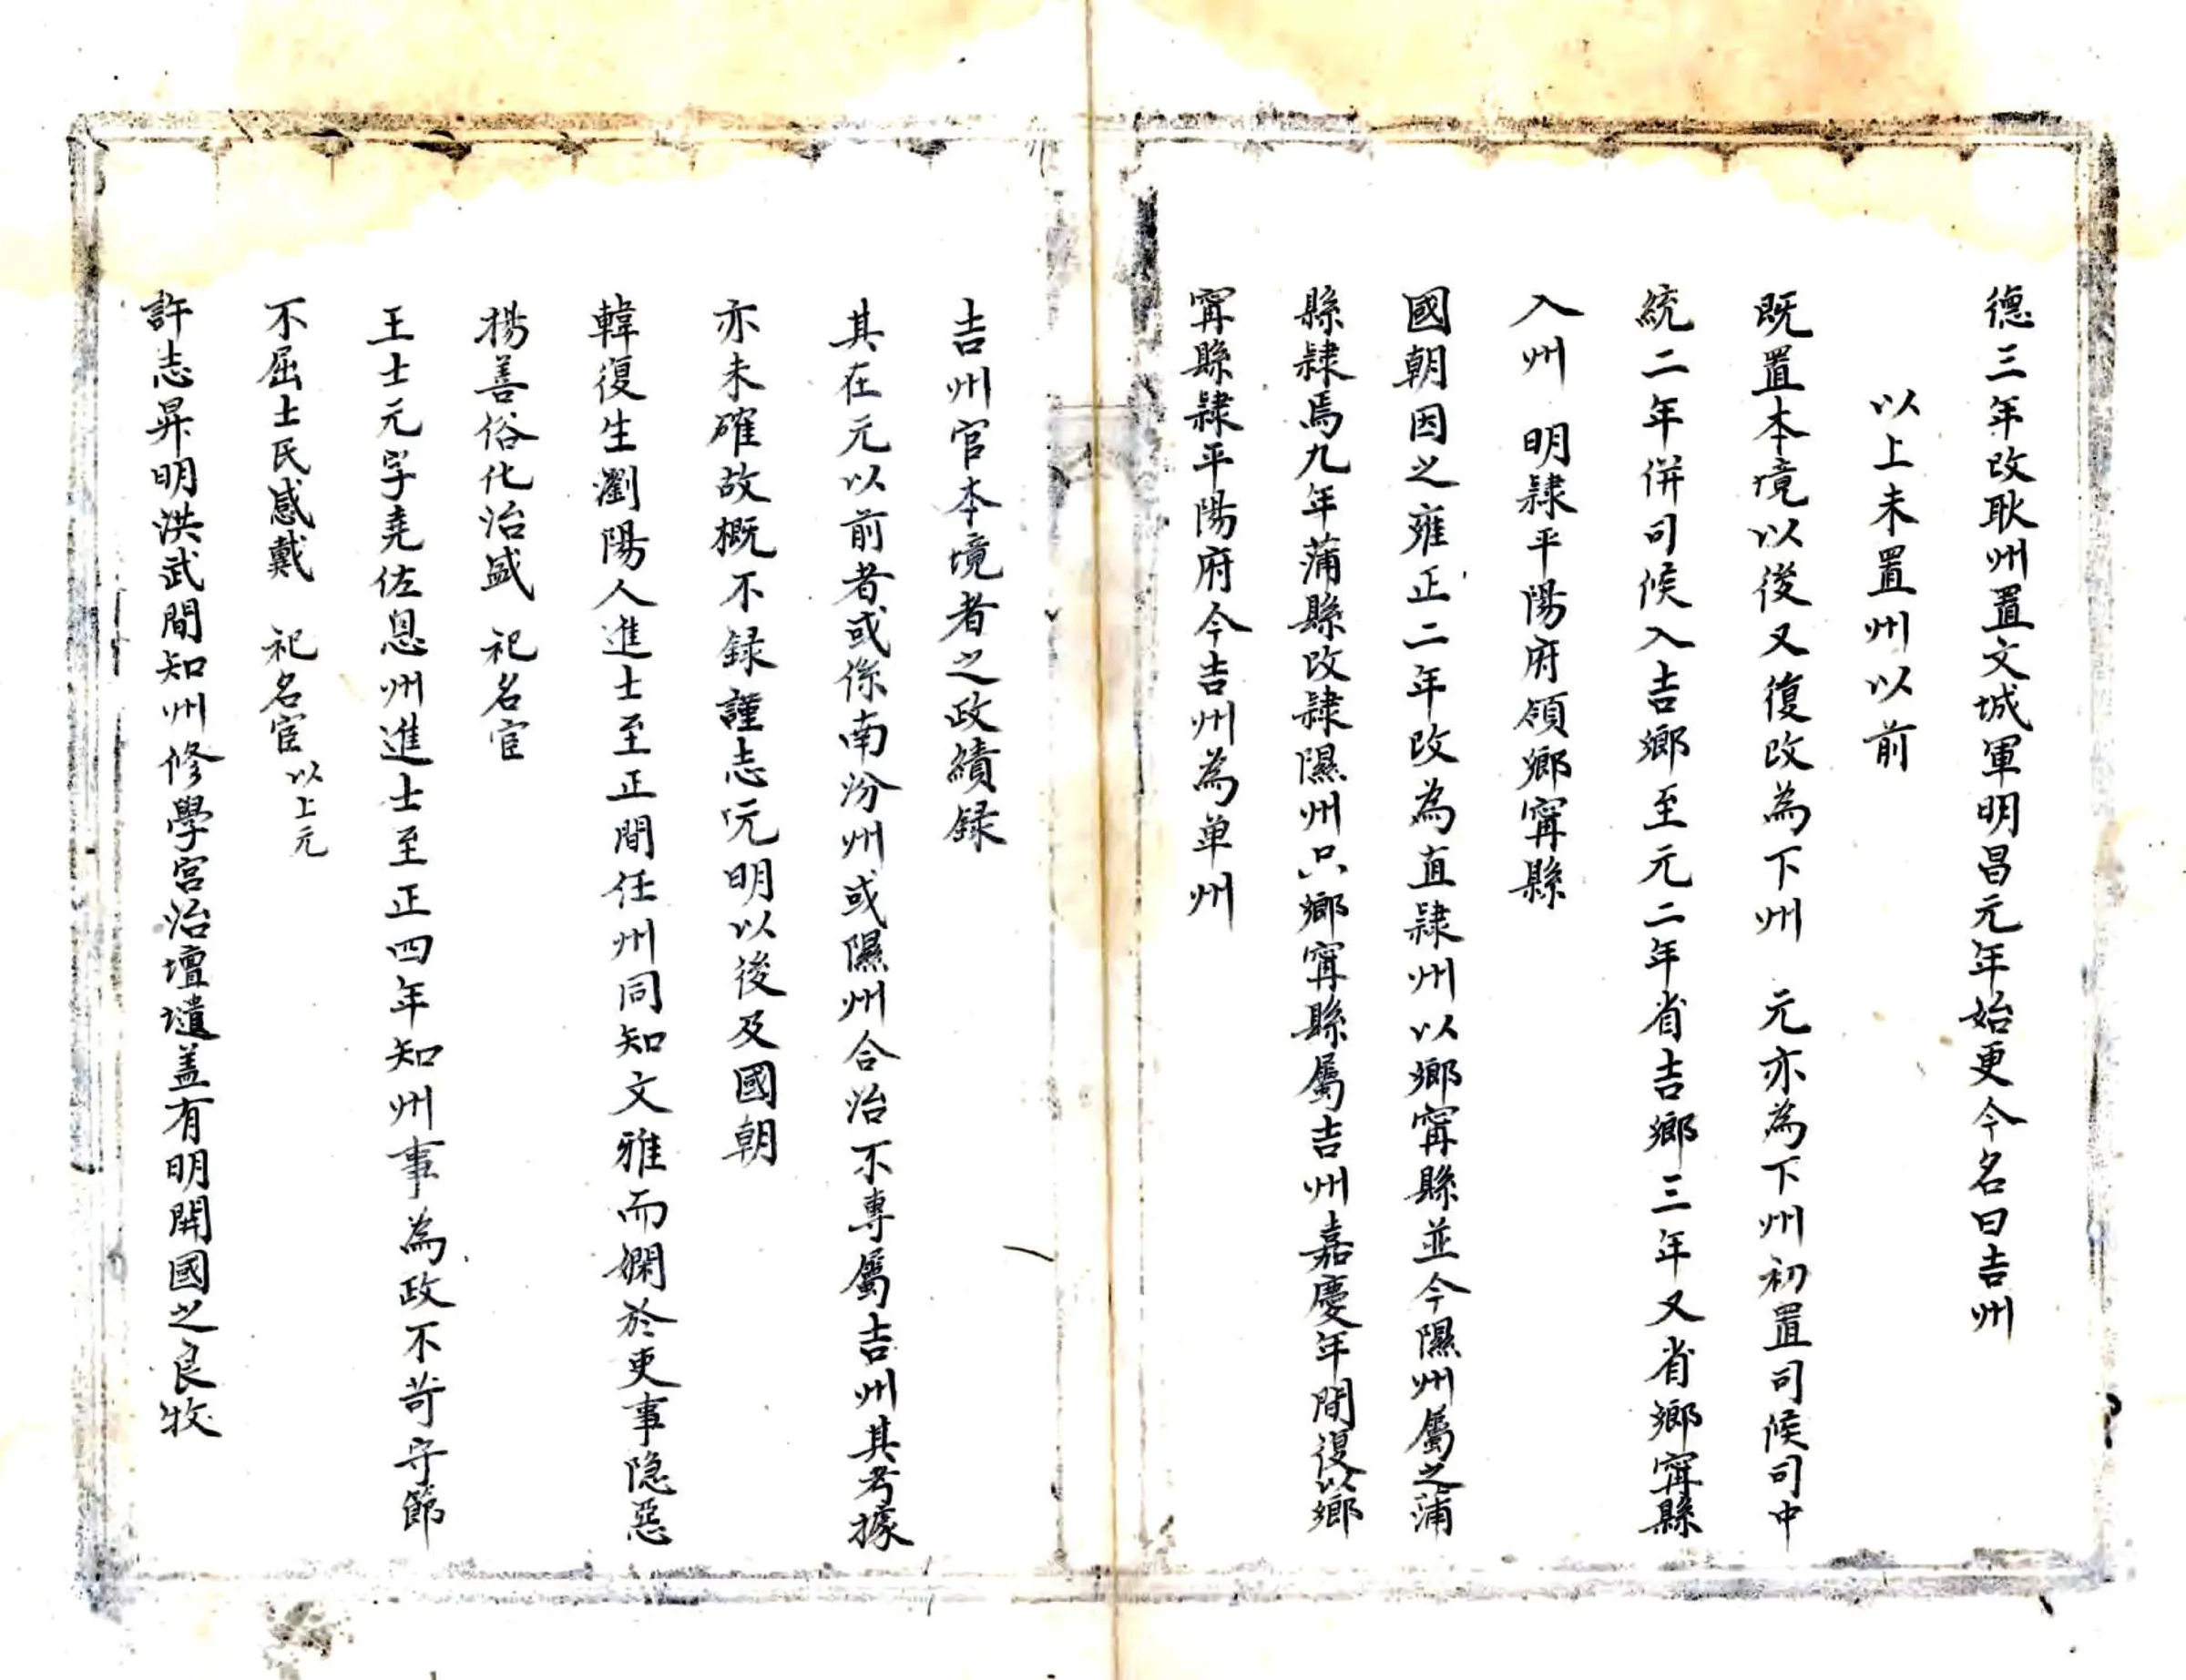 德三年改耿州置文城軍明昌元年始更今名曰吉州
以上未置州以前
既置本境以後又復改為下州　元亦為下州初置司候司中
統二年併司候入吉鄉至元二年省吉鄉三年又省鄉寗縣
入州　明隸平陽府領鄉寗縣
國朝因之雍正二年改為直隸州以鄉寗縣並今隰州屬之蒲
縣隸焉九年蒲縣改隸隰州只鄉寗縣屬吉州嘉慶年間復以鄉
寗縣隸平陽府今吉州為单州
吉州官本境者之政績録
其在元以前者或係南汾州或隰州合治不專屬吉州其考據
亦未確故概不録謹志元明以後及國朝
韓復生瀏陽人進士至正間任州同知文雅而嫻於吏事隐惡
揚善俗化治盛　祀名宦
王士元字堯佐恩州進士至正四年知州事為政不苛守節
不屈士民感戴　祀名宦以上元
許志昇明洪武間知州修學宮治壇壝盖有明開國之良牧